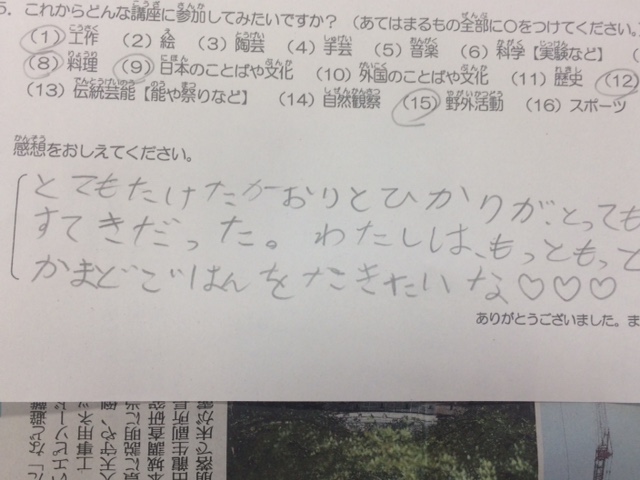 5. これからどんな講座に参加してみたいですか？（あてはまるもの全部に○をつけてください。
（1）工作 （2）絵 （3）陶芸 （4）手芸 （5）音楽 （6）科学【実験など】 （
（8）料理 （9）日本のことばや文化 （10）外国のことばや文化 （11）歴史 （12）
（13）伝統芸能【能や祭りなど】 （14）自然観察 （15）野外活動 （16）スポーツ
感想をおしえてください。
とてもたけたかおりとひかりが、とっても
すてきだった。わたしは、もっともって
かまどごはんをたきたいな♡♡♡
ありがとうございました。ま